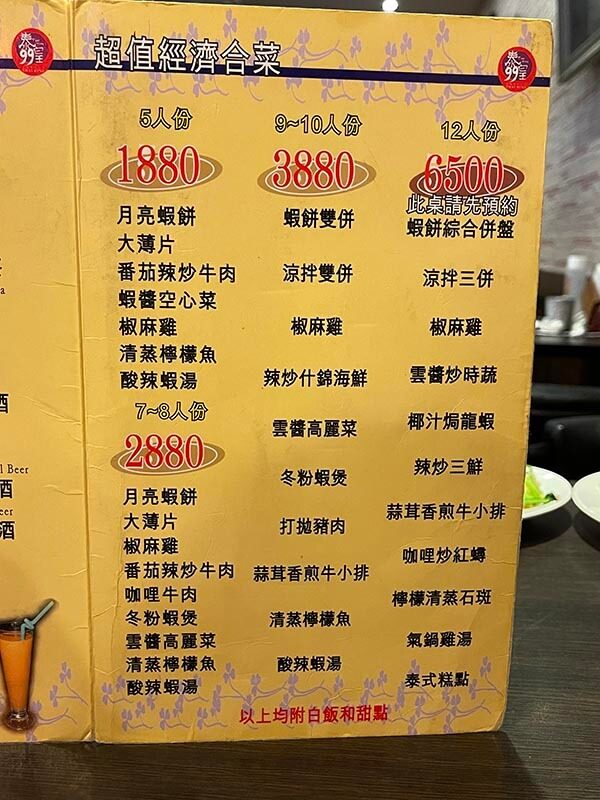 超值經濟合菜
5人份
1880
月亮蝦餅
大薄片
番茄辣炒牛肉
蝦醬空心菜
椒麻雞
清蒸檸檬魚
酸辣蝦湯
7~8人份
2880
月亮蝦餅
大薄片
椒麻雞
番茄辣炒牛肉
咖哩牛肉
冬粉蝦煲
雲醬高麗菜
清蒸檸檬魚
酸辣蝦湯
9~10人份
3880
蝦餅雙併
涼拌雙併
椒麻雞
辣炒什錦海鮮
雲醬高麗菜
冬粉蝦煲
打拋豬肉
蒜茸香煎牛小排
清蒸檸檬魚
酸辣蝦湯
12人份
6500
此桌請先預約
蝦餅綜合併盤
涼拌三併
椒麻雞
雲醬炒時蔬
椰汁焗龍蝦
辣炒三鮮
蒜茸香煎牛小排
咖哩炒紅蟳
檸檬清蒸石斑
氣鍋雞湯
泰式糕點
以上均附白飯和甜點
酒
l Beer
酒
eer
酒